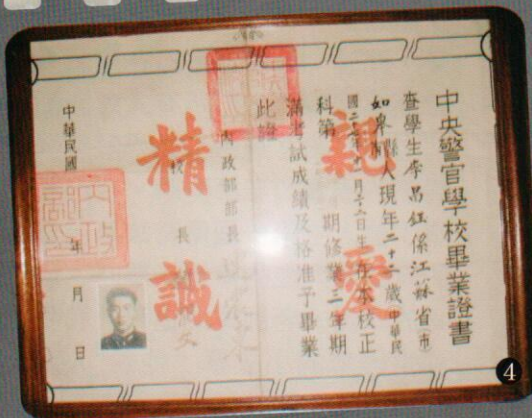 中央警官學校畢業證書
查學生李昌鈺係江蘇省(市)
如皋縣人現年二十二歲中華民
國二十七年十一月廿二日生在本校正
科第 期修業三年期
滿考試成績及格准予畢業
此證
內政部部長
校長
中華民國 年 月 日
親愛
精誠
4